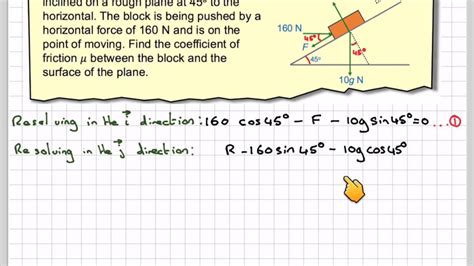 inclined on a rough plane at 45° to the
horizontal. The block is being pushed by a
horizontal force of 160 N and is on the
point of moving. Find the coefficient of
friction μ between the block and the
surface of the plane.
160 N
45°
F
45°
45°
10g N
Resolving in the i direction: 160 cos45° - F - 10g sin45° = 0 ... ①
Resolving in the j direction: R - 160 sin 45° - 10g cos45°